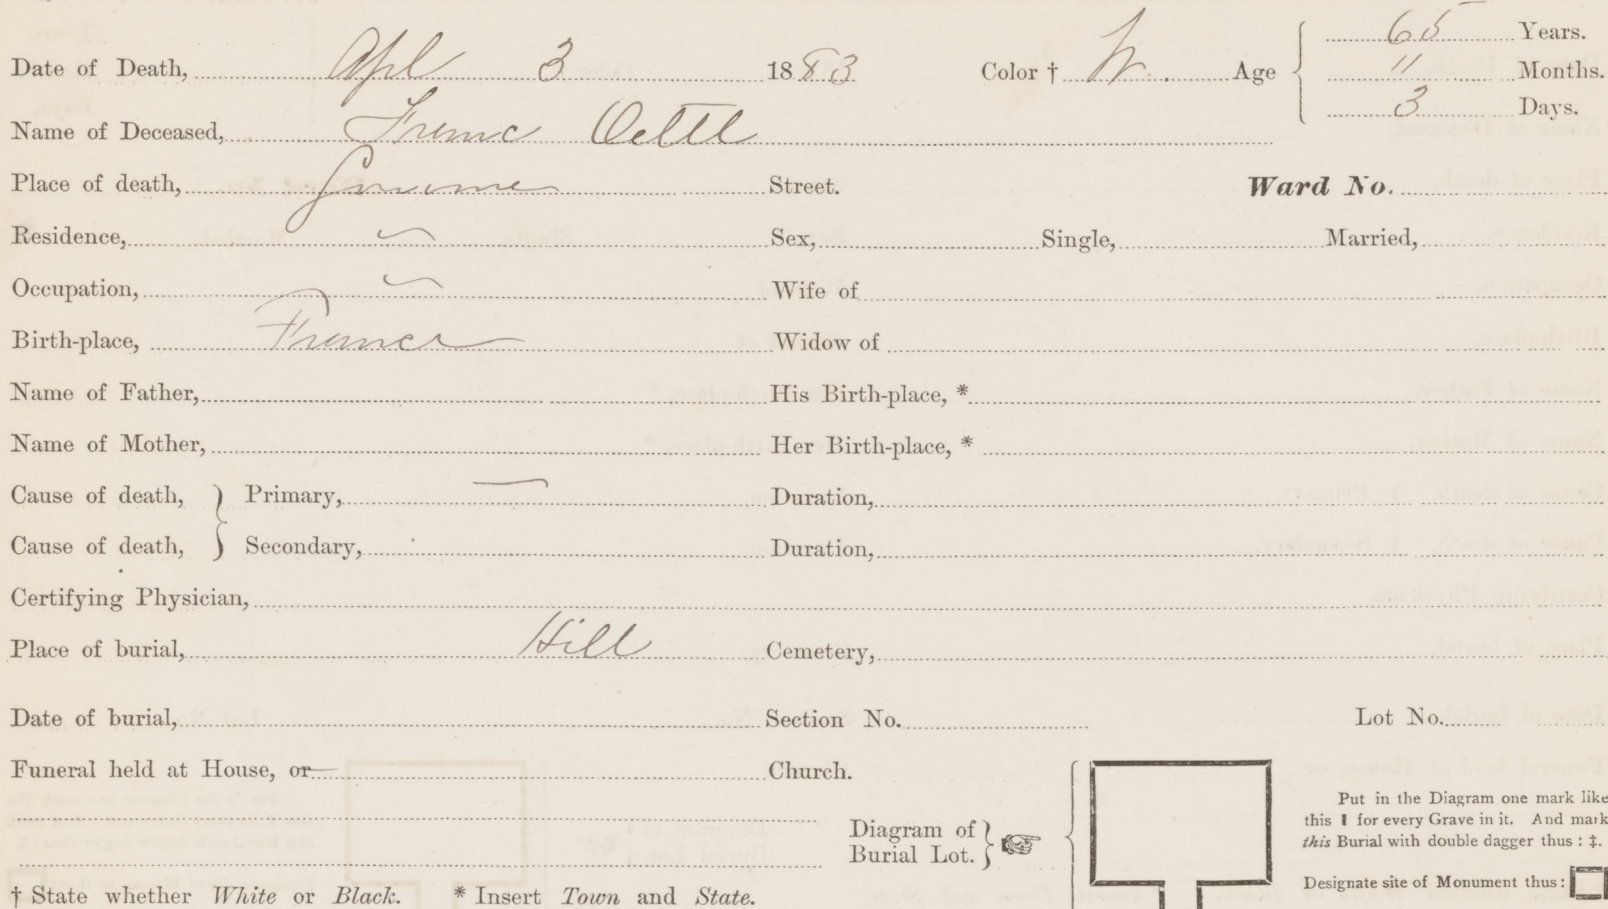 Date of Death, Apl 3 1883 Color † W. Age 65 Years.
11 Months.
3 Days.
Name of Deceased, Oettl
Place of death, Street. Ward No.
Residence, Sex, Single, Married,
Occupation, Wife of
Birth-place, France Widow of
Name of Father, His Birth-place, *
Name of Mother, Her Birth-place, *
Cause of death, } Primary, — Duration,
Cause of death, } Secondary, Duration,
Certifying Physician,
Place of burial, Hill Cemetery,
Date of burial, Section No. Lot No.
Funeral held at House, or Church.
Diagram of
Burial Lot. } ☞
Put in the Diagram one mark like
this ▮ for every Grave in it. And mark
this Burial with double dagger thus : ‡.
Designate site of Monument thus :
† State whether White or Black. * Insert Town and State.